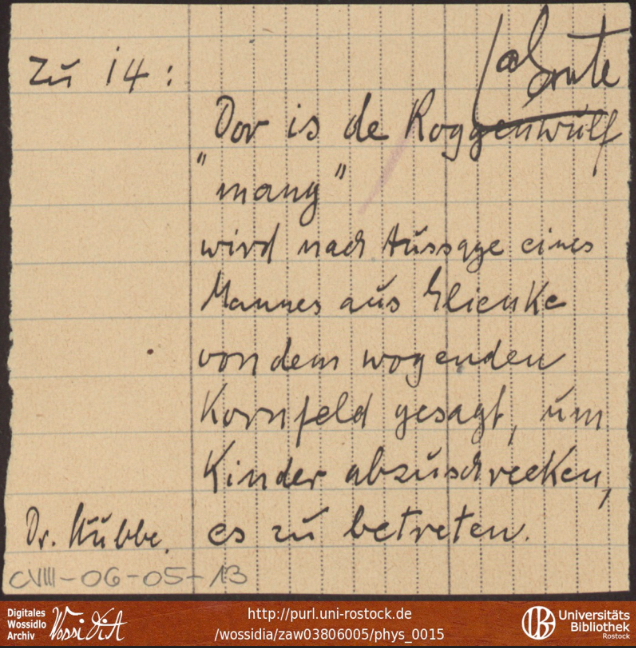 Zu 14:
Dor is de Roggenwulf
"mang"
wird nach Aussage eines
Mannes aus Glienke
von dem wogenden
Kornfeld gesagt, um
Kinder abzuschrecken,
Dr. Hubbe. es zu betreten.
CVIII-06-05-13
Digitales
Wossidlo
Archiv
WossiDiA
http://purl.uni-rostock.de
/wossidia/zaw03806005/phys_0015
Universitäts
Bibliothek
Rostock